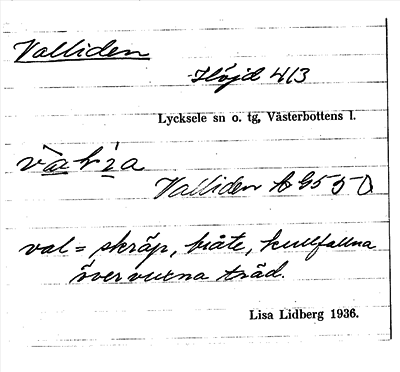 Valliden
Höjd 413
Lycksele sn o. tg, Västerbottens l.
Valliden
val = skråp, bråte, kullfallna
övervuxna träd.
Lisa Lidberg 1936.